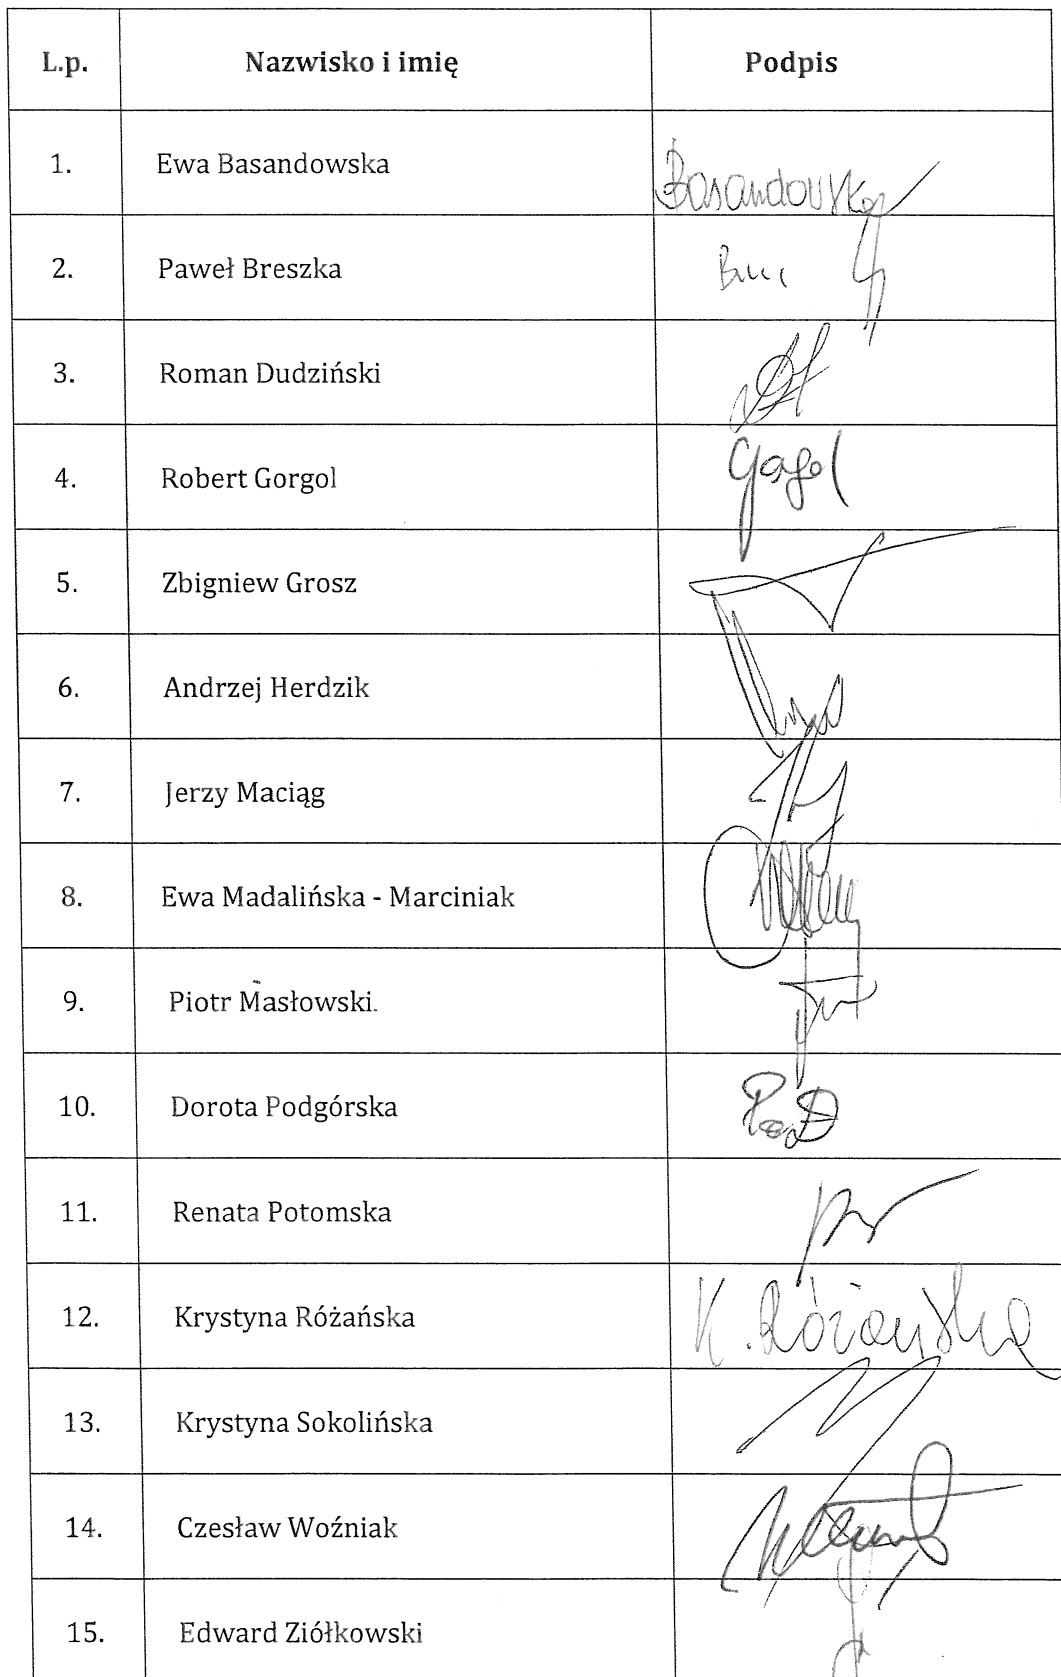 L.p. Nazwisko i imię Podpis
1. Ewa Basandowska Basandowska
2. Paweł Breszka
3. Roman Dudziński
4. Robert Gorgol Gorgol
5. Zbigniew Grosz
6. Andrzej Herdzik
7. Jerzy Maciąg
8. Ewa Madalińska - Marciniak
9. Piotr Masłowski.
10. Dorota Podgórska
11. Renata Potomska
12. Krystyna Różańska K. Różańska
13. Krystyna Sokolińska
14. Czesław Woźniak
15. Edward Ziółkowski